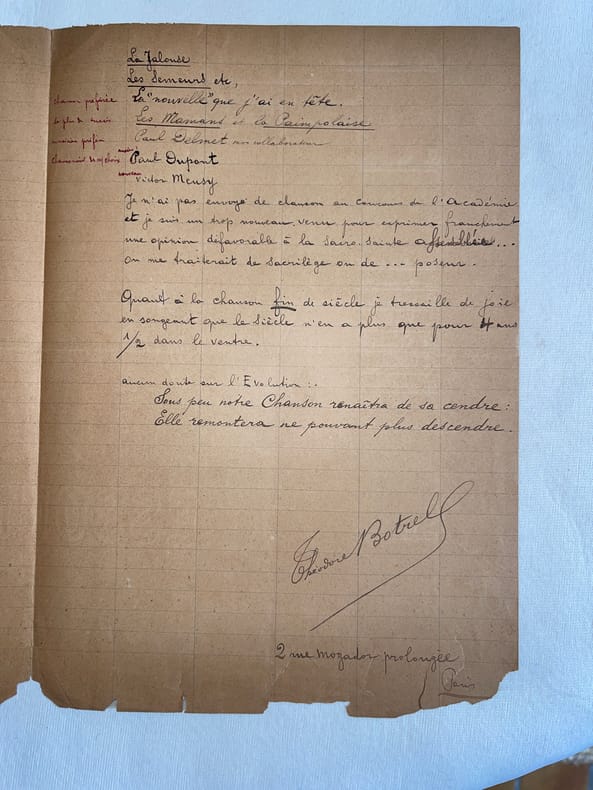 La Jalouse
Les Semeurs etc,
chanson préférée La "nouvelle" que j'ai en tête.
le plus de succès Les Mamans et la Paimpolaise
musicien préféré Paul Delmet mon collaborateur
chansonnier de mon choix ancien : Paul Dupont
nouveau Victor Meusy
Je n'ai pas envoyé de chanson au concours de l'Académie
et je suis un trop nouveau venu pour exprimer franchement
une opinion défavorable à la sacro-sainte assemblée...
On me traiterait de sacrilège ou de ... poseur.
Quant à la chanson fin de siècle je tressaille de joie
en songeant que le Siècle n'en a plus que pour 4 ans
1/2 dans le ventre.
aucun doute sur l'Evolution :.
Sous peu notre Chanson renaîtra de sa cendre :
Elle remontera ne pouvant plus descendre.
Théodore Botrel
2 rue mogador prolongée
Paris